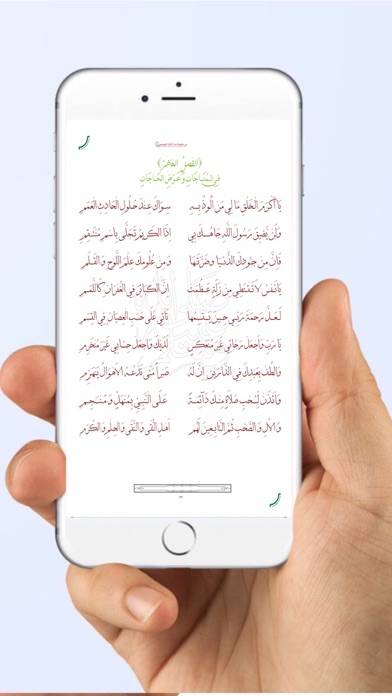 ﴿الفَصْلُ العَاشِرُ﴾
فِي المُنَاجَاتِ وَعَرْضِ الحَاجَاتِ
يَا أَكْرَمَ الخَلْقِ مَا لِي مَنْ أَلُوذُ بِهِ سِوَاكَ عِنْدَ حُلُولِ الحَادِثِ العَمَمِ
وَلَنْ يَضِيقَ رَسُولَ اللهِ جَاهُكَ بِي إِذَا الكَرِيمُ تَجَلَّى بِاسْمِ مُنْتَقِمِ
فَإِنَّ مِنْ جُودِكَ الدُّنْيَا وَضَرَّتَهَا وَمِنْ عُلُومِكَ عِلْمَ اللَّوْحِ وَالقَلَمِ
يَا نَفْسُ لَا تَقْنَطِي مِنْ زَلَّةٍ عَظُمَتْ إِنَّ الكَبَائِرَ فِي الغُفْرَانِ كَاللَّمَمِ
لَعَلَّ رَحْمَةَ رَبِّي حِينَ يَقْسِمُهَا تَأْتِي عَلَى حَسَبِ العِصْيَانِ فِي القِسَمِ
يَا رَبِّ وَاجْعَلْ رَجَائِي غَيْرَ مُنْعَكِسٍ لَدَيْكَ وَاجْعَلْ حِسَابِي غَيْرَ مُنْخَرِمِ
وَالْطُفْ بِعَبْدِكَ فِي الدَّارَيْنِ إِنَّ لَهُ صَبْرًا مَتَى تَدْعُهُ الأَهْوَالُ يَنْهَزِمِ
وَأْذَنْ لِسُحْبِ صَلَاةٍ مِنْكَ دَائِمَةٍ عَلَى النَّبِيِّ بِمُنْهَلٍّ وَمُنْسَجِمِ
وَالآلِ وَالصَّحْبِ ثُمَّ التَّابِعِينَ لَهُمْ أَهْلِ التُّقَى وَالنَّقَى وَالحِلْمِ وَالكَرَمِ